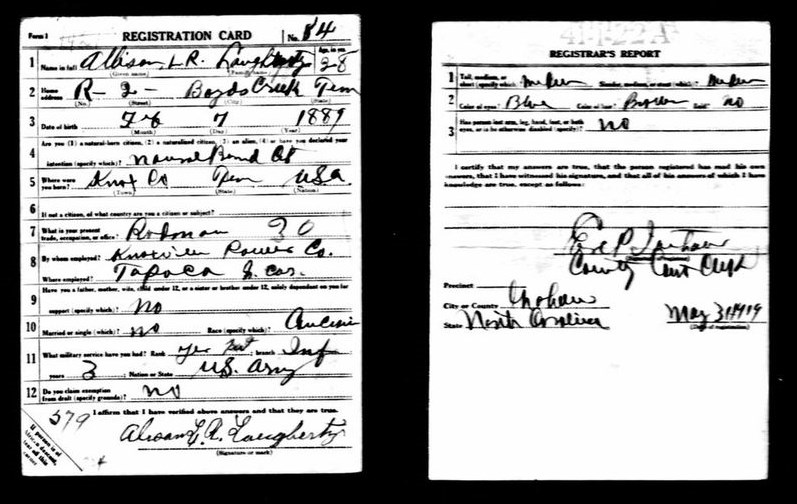 Form 1 REGISTRATION CARD No. 84
1 Name in full Allison L R. Age, in yrs. 28
(Given name) (Family name)
2 Home address R- 2- Boyds Creek Tenn
(No.) (Street) (City) (State)
3 Date of birth Feb 7 1889
(Month) (Day) (Year)
4 Are you (1) a natural-born citizen, (2) a naturalized citizen, (3) an alien, (4) or have you declared your
intention (specify which)?
5 Where were you born? Knox Co Tenn USA
(Town) (State) (Nation)
6 If not a citizen, of what country are you a citizen or subject?
7 What is your present trade, occupation, or office? Rodman 30
8 By whom employed? Knoxville Power Co.
Where employed? Tapoco
9 Have you a father, mother, wife, child under 12, or a sister or brother under 12, solely dependent on you for
support (specify which)? No
10 Married or single (which)? No Race (specify which)?
11 What military service have you had? Rank branch Inf
years 3 Nation or State U.S. Army
12 Do you claim exemption from draft (specify grounds)? No
I affirm that I have verified above answers and that they are true.
579
L. R. Laugherty
(Signature or mark)
If person is of
REGISTRAR'S REPORT
1 Tall, medium, or short (specify which)? Medium Slender, medium, or stout (which)? Medium
2 Color of eyes? Blue Color of hair? Brown Bald? No
3 Has person lost arm, leg, hand, foot, or both eyes, or is he otherwise disabled (specify)? No
I certify that my answers are true, that the person registered has read his own
answers, that I have witnessed his signature, and that all of his answers of which I have
knowledge are true, except as follows:
County Clerk
Precinct
City or County Graham
State North Carolina May 31
(Date of registration)